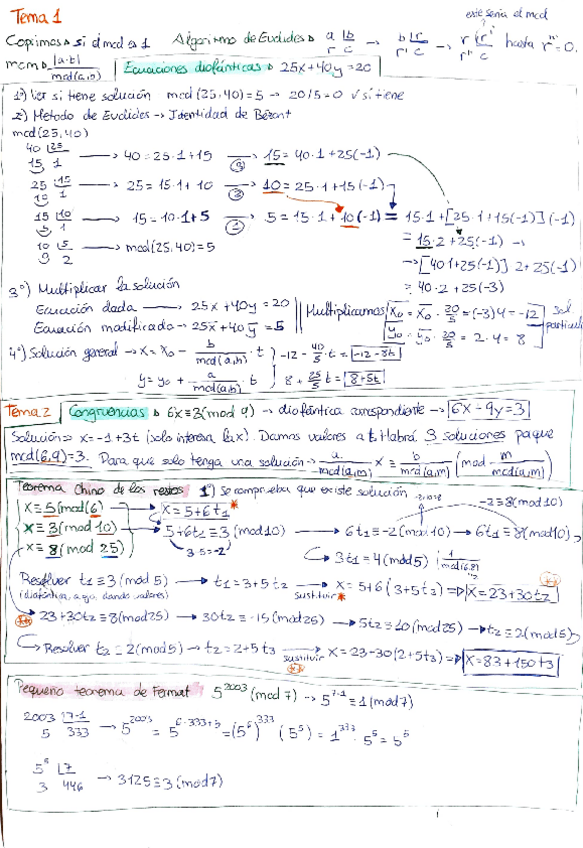 Tema 1
este sería el mcd
Coprimos → si el mcd es 1 Algoritmo de Euclides → a |b → b |r → r |r' hasta r^n = 0.
r c r' c r'' c
mcm → |a·b| / mcd(a,b) Ecuaciones diofánticas → 25x+40y=20
1º) Ver si tiene solución mcd(25,40)=5 → 20/5=0 ✓ si tiene
2º) Metodo de Euclides → Identidad de Bézout
mcd(25,40)
40 |25
15 1 → 40=25·1+15 → 15=40·1+25(-1)
25 |15
10 1 → 25=15·1+10 → 10=25·1+15(-1)
15 |10
5 1 → 15=10·1+5 → 5=15·1+10(-1) = 15·1+[25·1+15(-1)](-1)
= 15·2+25(-1) →
10 |5
0 2 → mcd(25,40)=5
→ [40·1+25(-1)]2+25(-1)
= 40·2+25(-3)
3º) Multiplicar la solución
Ecuación dada → 25x+40y=20
Ecuación modificada → 25x̄+40ȳ=5
Multiplicamos x₀=x̄₀·20/5=(-3)4=-12
y₀=ȳ₀·20/5=2·4=8
sol
particul
4º) Solución general → x=x₀ - b/mcd(a,b) · t -12 - 40/5 · t = -12-8t
y=y₀ + a/mcd(a,b) · t 8 + 25/5 t = 8+5t
Tema 2 Congruencias → 6x≡3(mod 9) → diofántica correspondiente → 6x-9y=3
Solución → x=-1+3t (solo interesa la x). Damos valores a t. Habrá 3 soluciones porque
mcd(6,9)=3. Para que solo tenga una solución → a/mcd(a,m) x ≡ b/mcd(a,m) (mod m/mcd(a,m))
Teorema Chino de los restos 1º) Se comprueba que existe solución
x≡5(mod 6) → x=5+6t₁ *
-2≡8(mod10)
x≡3(mod 10) → 5+6t₁≡3(mod10) → 6t₁≡-2(mod10) → 6t₁≡8(mod10)
3-5=-2
x≡8(mod 25)
→ 3t₁≡4(mod5)
Resolver t₁≡3(mod 5) → t₁=3+5t₂ sustituir * → x=5+6(3+5t₂) ⇒ x=23+30t₂ **
** 23+30t₂≡8(mod25) → 30t₂≡-15(mod25) → 5t₂≡10(mod25) → t₂≡2(mod5)
Resolver t₂≡2(mod5) → t₂=2+5t₃ sustituir ** → x=23-30(2+5t₃) ⇒ x=83+150t₃
Pequeño teorema de Fermat 5^2003 (mod 7) → 5^7-1≡1(mod7)
2003 |7-1
5 333 → 5^2003 = 5^6·333+5 = (5^6)^333 (5^5) = 1^333 · 5^5 = 5^5
5^5 |7
3 446 → 3125≡3(mod7)